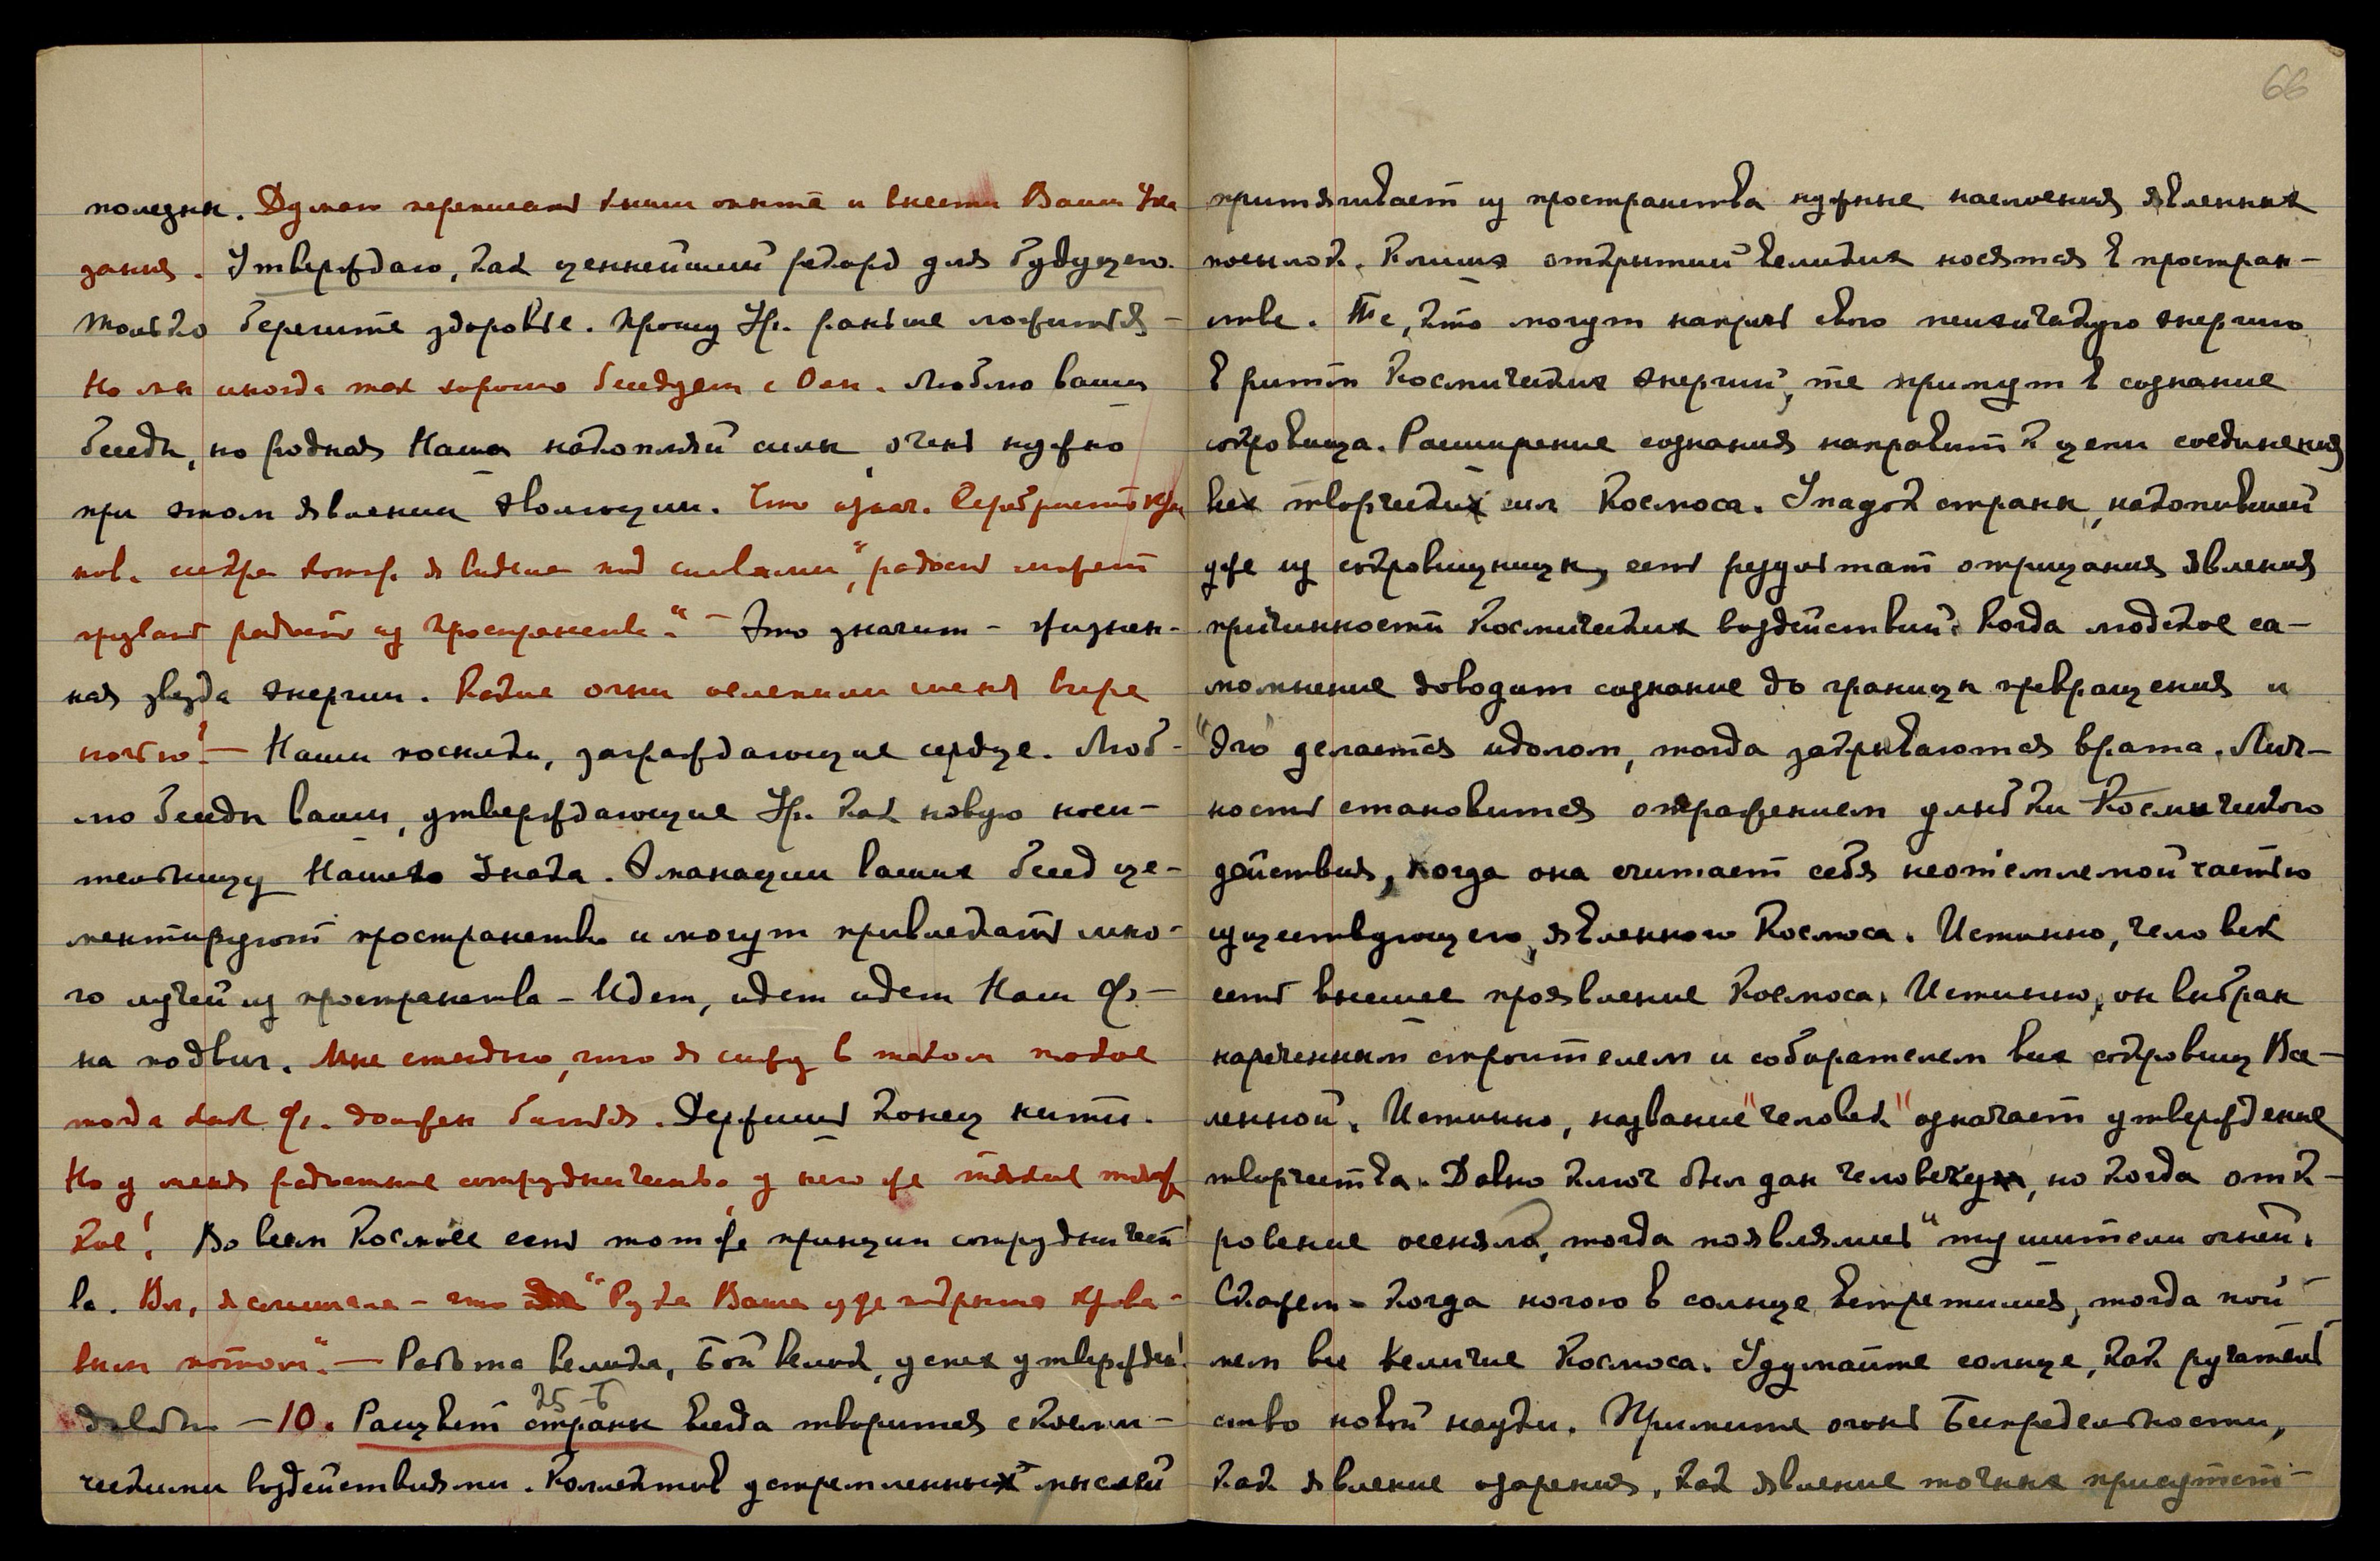 полезны. Думаю переписать книги опыта и внести Ваши Ука
зания. Утверждаю, как ценнейший рекорд для будущего.
Только берегите здоровье. Прошу Ур. раньше ложиться –
Но мы иногда так хорошо беседуем с Оян. Люблю ваши
беседы, но родная Наша накопляй силы, очень нужно
при этом явлении эволюции. Что означ. Серебристо
нов. искра котор. я видела под словами „радость может
призвать радость из пространства“. – Это значит – жизнен-
ная звезда энергии. Какие огни ослепили меня вчера
ночью! – Наши посылки, заграждающие сердце. Люб-
лю беседы ваши, утверждающие Ур. как новую носи-
тельницу Нашего Знака. Эманации ваших бесед це-
ментируют пространство и могут привлекать мно-
го лучей из пространства – Идет, идет идет Наш Ф. –
на подвиг. Мне стыдно, что я сижу в таком покое
тогда как Ф. должен биться. Держишь конец нити.
Но у меня радостное сотрудничество, у него же такое тяж
кое! Во всем Космосе есть тот же принцип сотрудничест
ва. Вл., я слышала – что “Рука Ваша уже покрыта крова-
вым потом“. – Работа велика, Бой велик, успех утвержден!
– 10. Расцвет страны всегда творится с косми-
25 – Б
ческими воздействиями. Коллектив устремленных мыслей
66
притягивает из пространства нужные наслоения явленных
посылок. Клише открытий великих носятся в простран-
стве. Те, кто могут напрячь свою психическую энергию
в ритм Космических энергий, те примут в сознание
сокровища. Расширение сознания направит к цепи соединения
всех творческих сил Космоса. Упадок страны, накопившей
уже из сокровищницы, есть результат отрицания явления
причинности Космических воздействий. Когда людское са-
момнение доводит сознание до границы превращения и
“Эго” делается идолом, тогда закрываются врата. Лич-
ность становится отражением улыбки Космического
действия, когда она считает себя неотъемлемой частью
существующего, явленного Космоса. Истинно, человек
есть высшее проявление Космоса. Истинно, он выбран
нареченным строителем и собирателем всех сокровищ Все-
ленной. Истинно, название “человек“ означает утверждение
творчества. Давно ключ был дан человеку, но когда отк-
ровение осеняло, тогда появлялись “тушители огней.
Скажем – когда ногою в солнце встретишь, тогда пой
мем все величие Космоса. Удумайте солнце, как ручатель
ство новой науки. Примите огонь Беспредельности,
как явление озарения, как явление точных присутст-